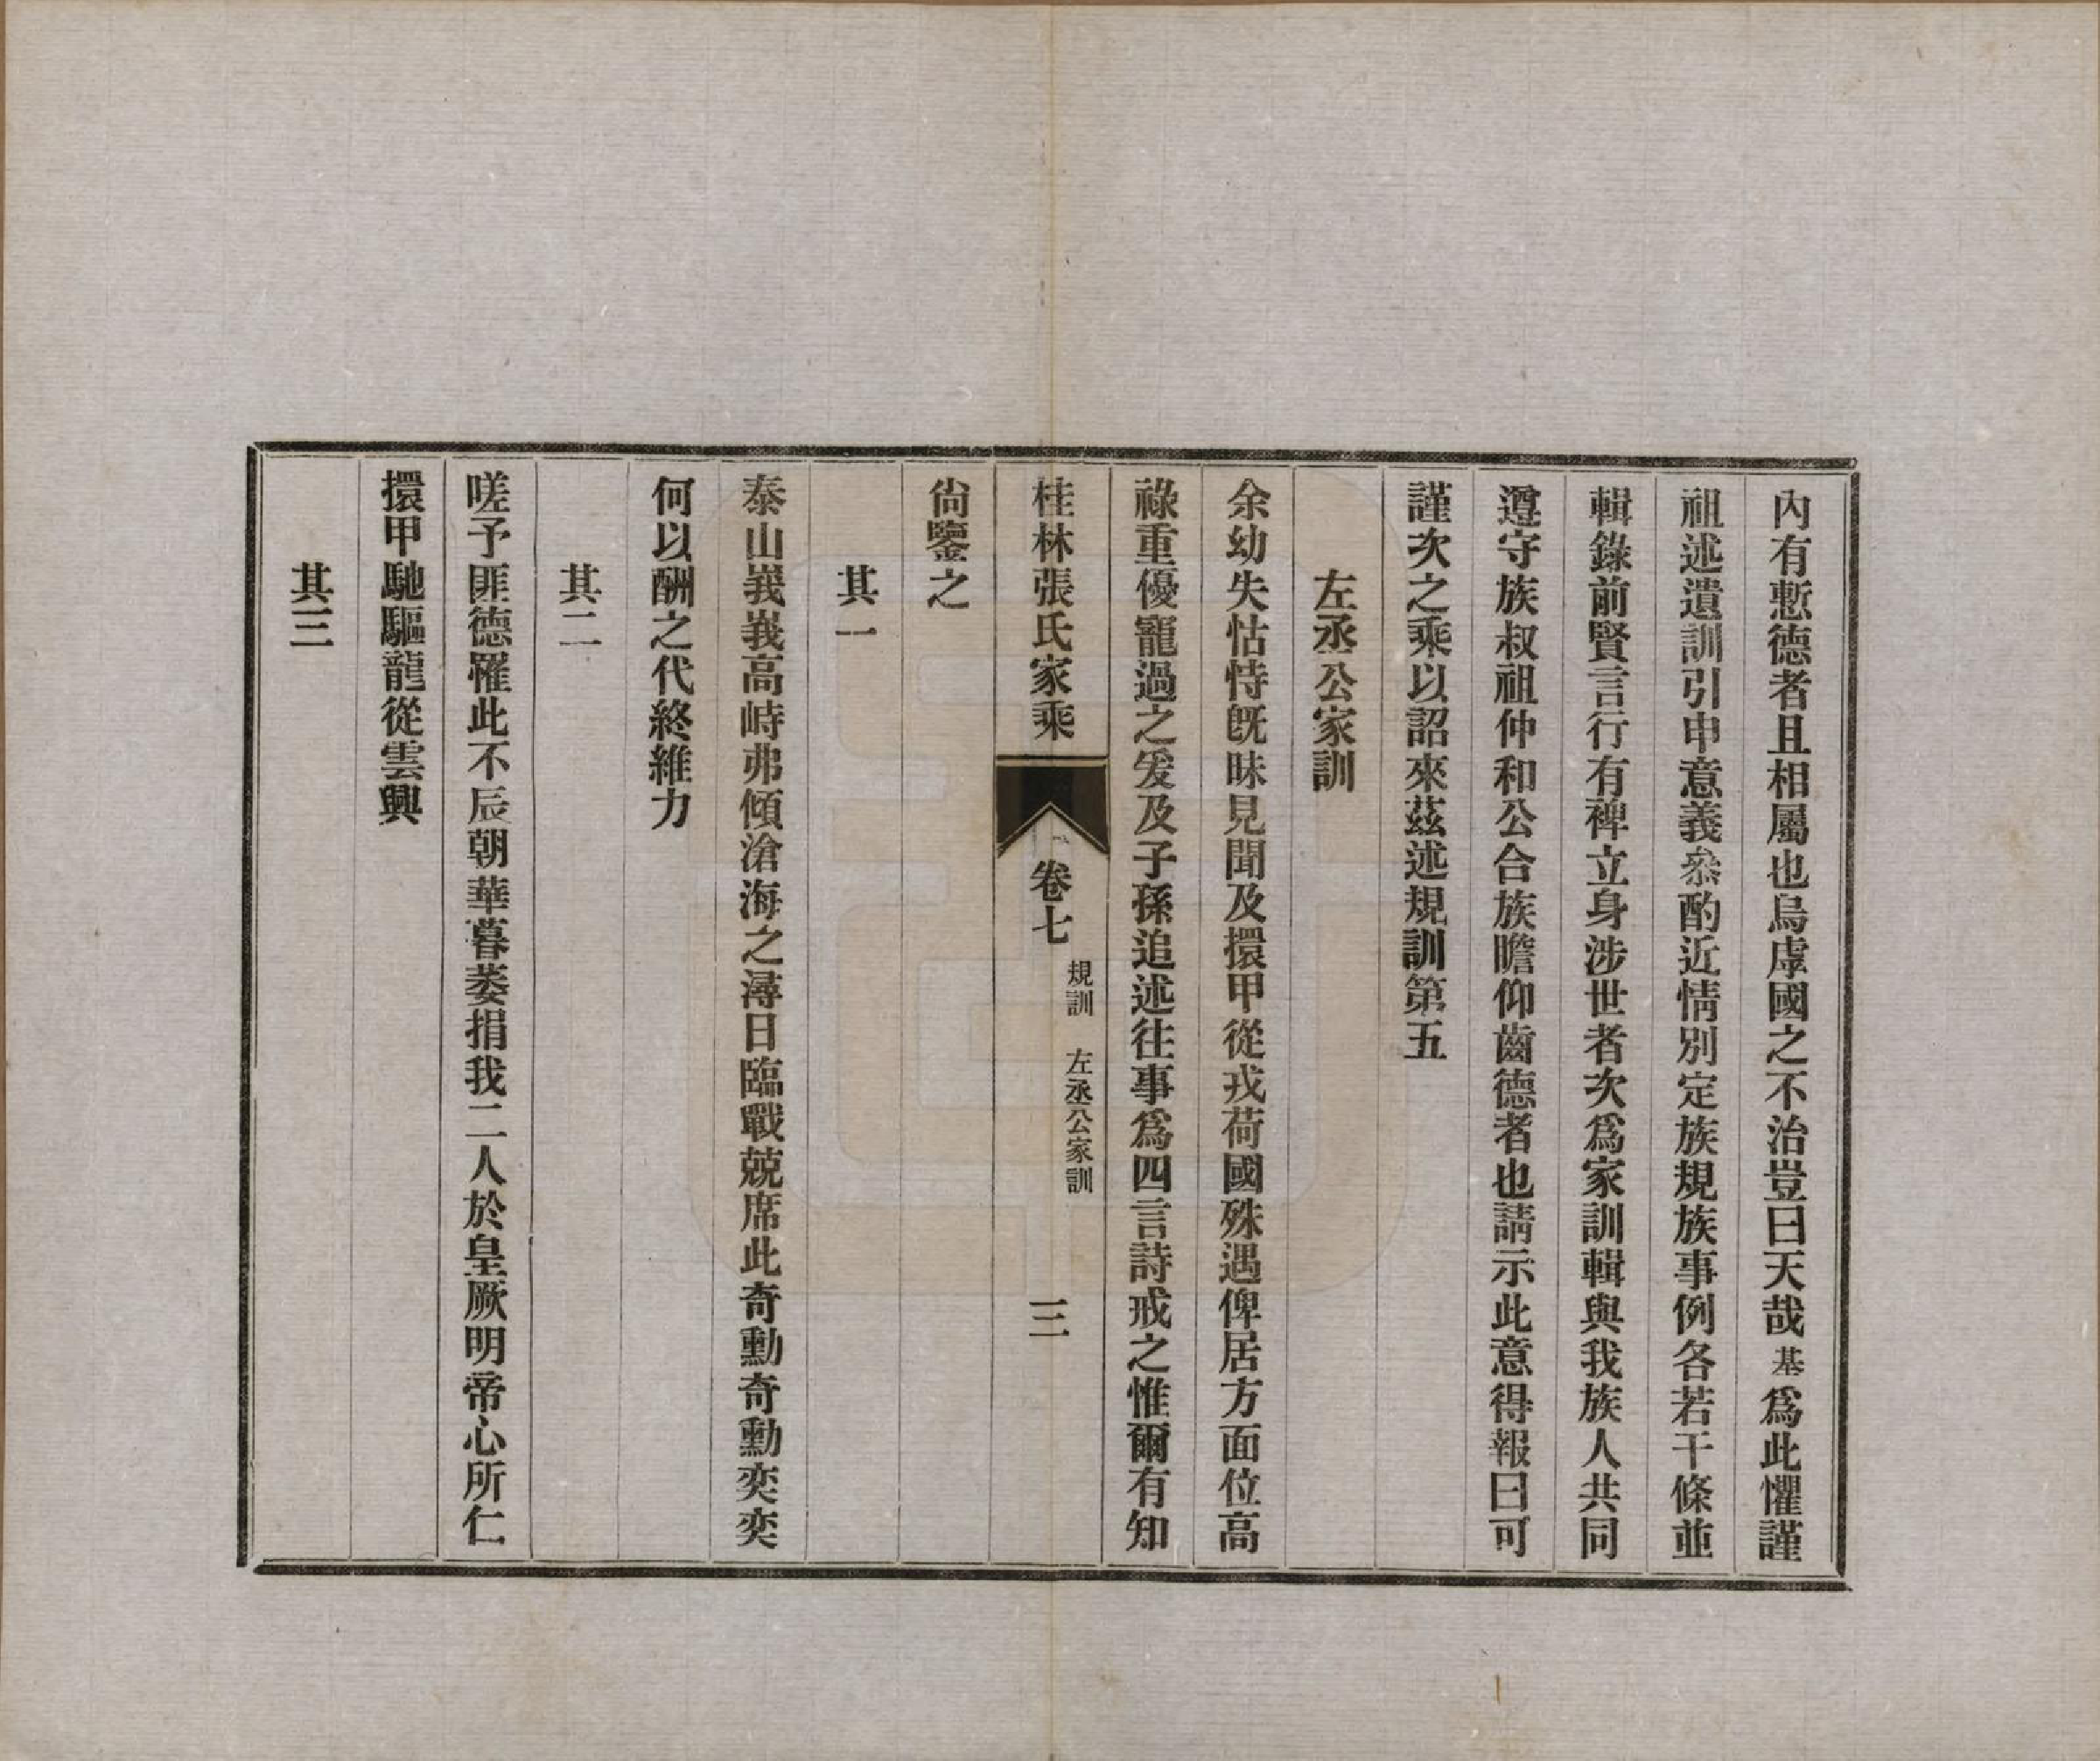 內有慙德者且相屬也烏虖國之不治豈曰天哉基爲此懼謹
祖述遺訓引申意義叅酌近情別定族規族事例各若干條並
輯錄前賢言行有裨立身涉世者次爲家訓輯與我族人共同
遵守族叔祖仲和公合族瞻仰齒德者也請示此意得報曰可
謹次之乘以詔來茲述規訓第五
左丞公家訓
余幼失怙恃旣昧見聞及擐甲從戎荷國殊遇俾居方面位高
祿重優寵過之爰及子孫追述往事爲四言詩戒之惟爾有知
桂林張氏家乘
卷七
規訓 左丞公家訓
三
尙鑒之
其一
泰山峩峩高峙弗傾滄海之潯日臨戰兢席此奇勳奇勳奕奕
何以酬之代終維力
其二
嗟予匪德罹此不辰朝華暮萎捐我二人於皇厥明帝心所仁
擐甲馳驅龍從雲興
其三